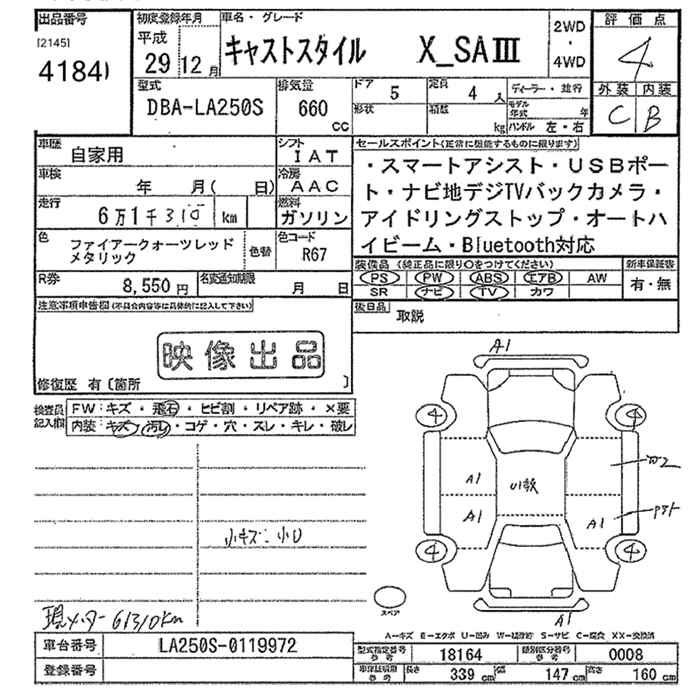 出品番号
[2145]
4184
初度登録年月
平成
29 12 月
車名・グレード
キャストスタイル X_SAⅢ
2WD
・
4WD
評価点
4
外装 内装
C B
型式
DBA-LA250S
排気量
660
cc
ドア 5
定員 4 人
形状
積数 kg
ディーラー・並行
モデル年式 年
ハンドル 左・右
車歴
自家用
シフト
IAT
車検
年 月( 日)
冷房
AAC
走行
6万1千310 km
燃料
ガソリン
色
ファイアークォーツレッド
メタリック
色替
色コード
R67
R券
8,550円
名変通知期限
月 日
セールスポイント(正常に機能するものに限ります)
・スマートアシスト・USBポー
ト・ナビ地デジTVバックカメラ・
アイドリングストップ・オートハ
イビーム・Bluetooth対応
装備品 (純正品に限り○をつけてください)
PS PW ABS エアB AW
SR ナビ TV カワ
新車保証書
有・無
後日品
取説
注意事項申告欄(不具合内容等は具体的に記入して下さい)
映像出品
修復歴 有〔箇所 〕
検査員記入欄
FW:キズ・飛石・ヒビ割・リペア跡・×要
内装:キズ・汚レ・コゲ・穴・スレ・キレ・破レ
小キズ・小U
現メーター 61310km
A1
4 4
A1
A1
A1
A1
4 4
スペア
A-キズ E-エクボ U-凹み W-補修跡 S-サビ C-腐食 XX-交換済
車台番号
LA250S-0119972
登録番号
型式指定番号参考
18164
類別区分番号参考
0008
車体証明用参考
長さ 339 cm 幅 147 cm 高さ 160 cm